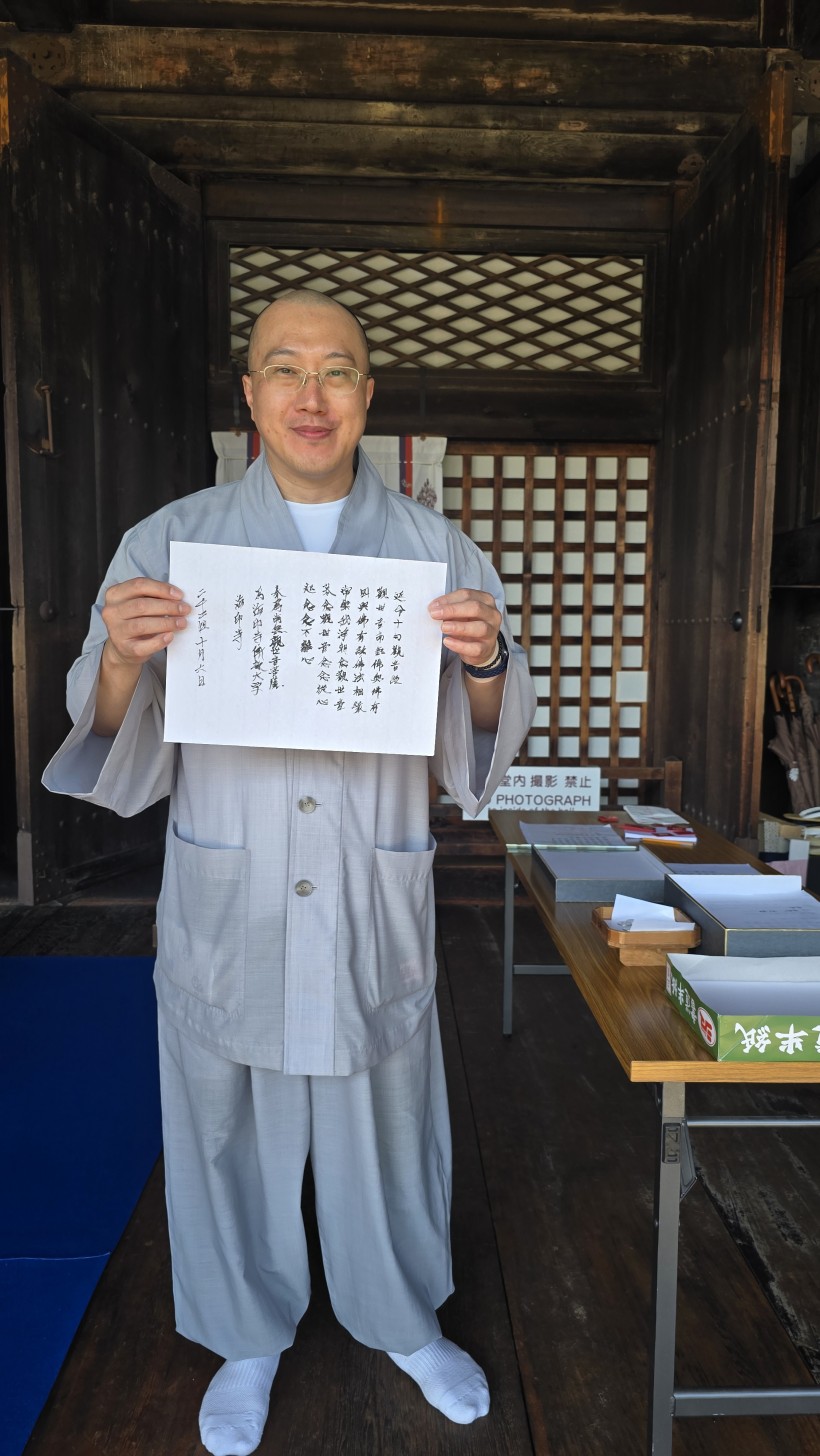 延命十句觀音経
觀世音南無佛與佛有
因與佛有緣佛法相緣
常樂我淨朝念觀世音
暮念觀世音念念從心
起念念不離心
南無觀世音菩薩
海印寺
十月六日
堂内 撮影 禁止
PHOTOGRAPH
inside of the hall
半紙